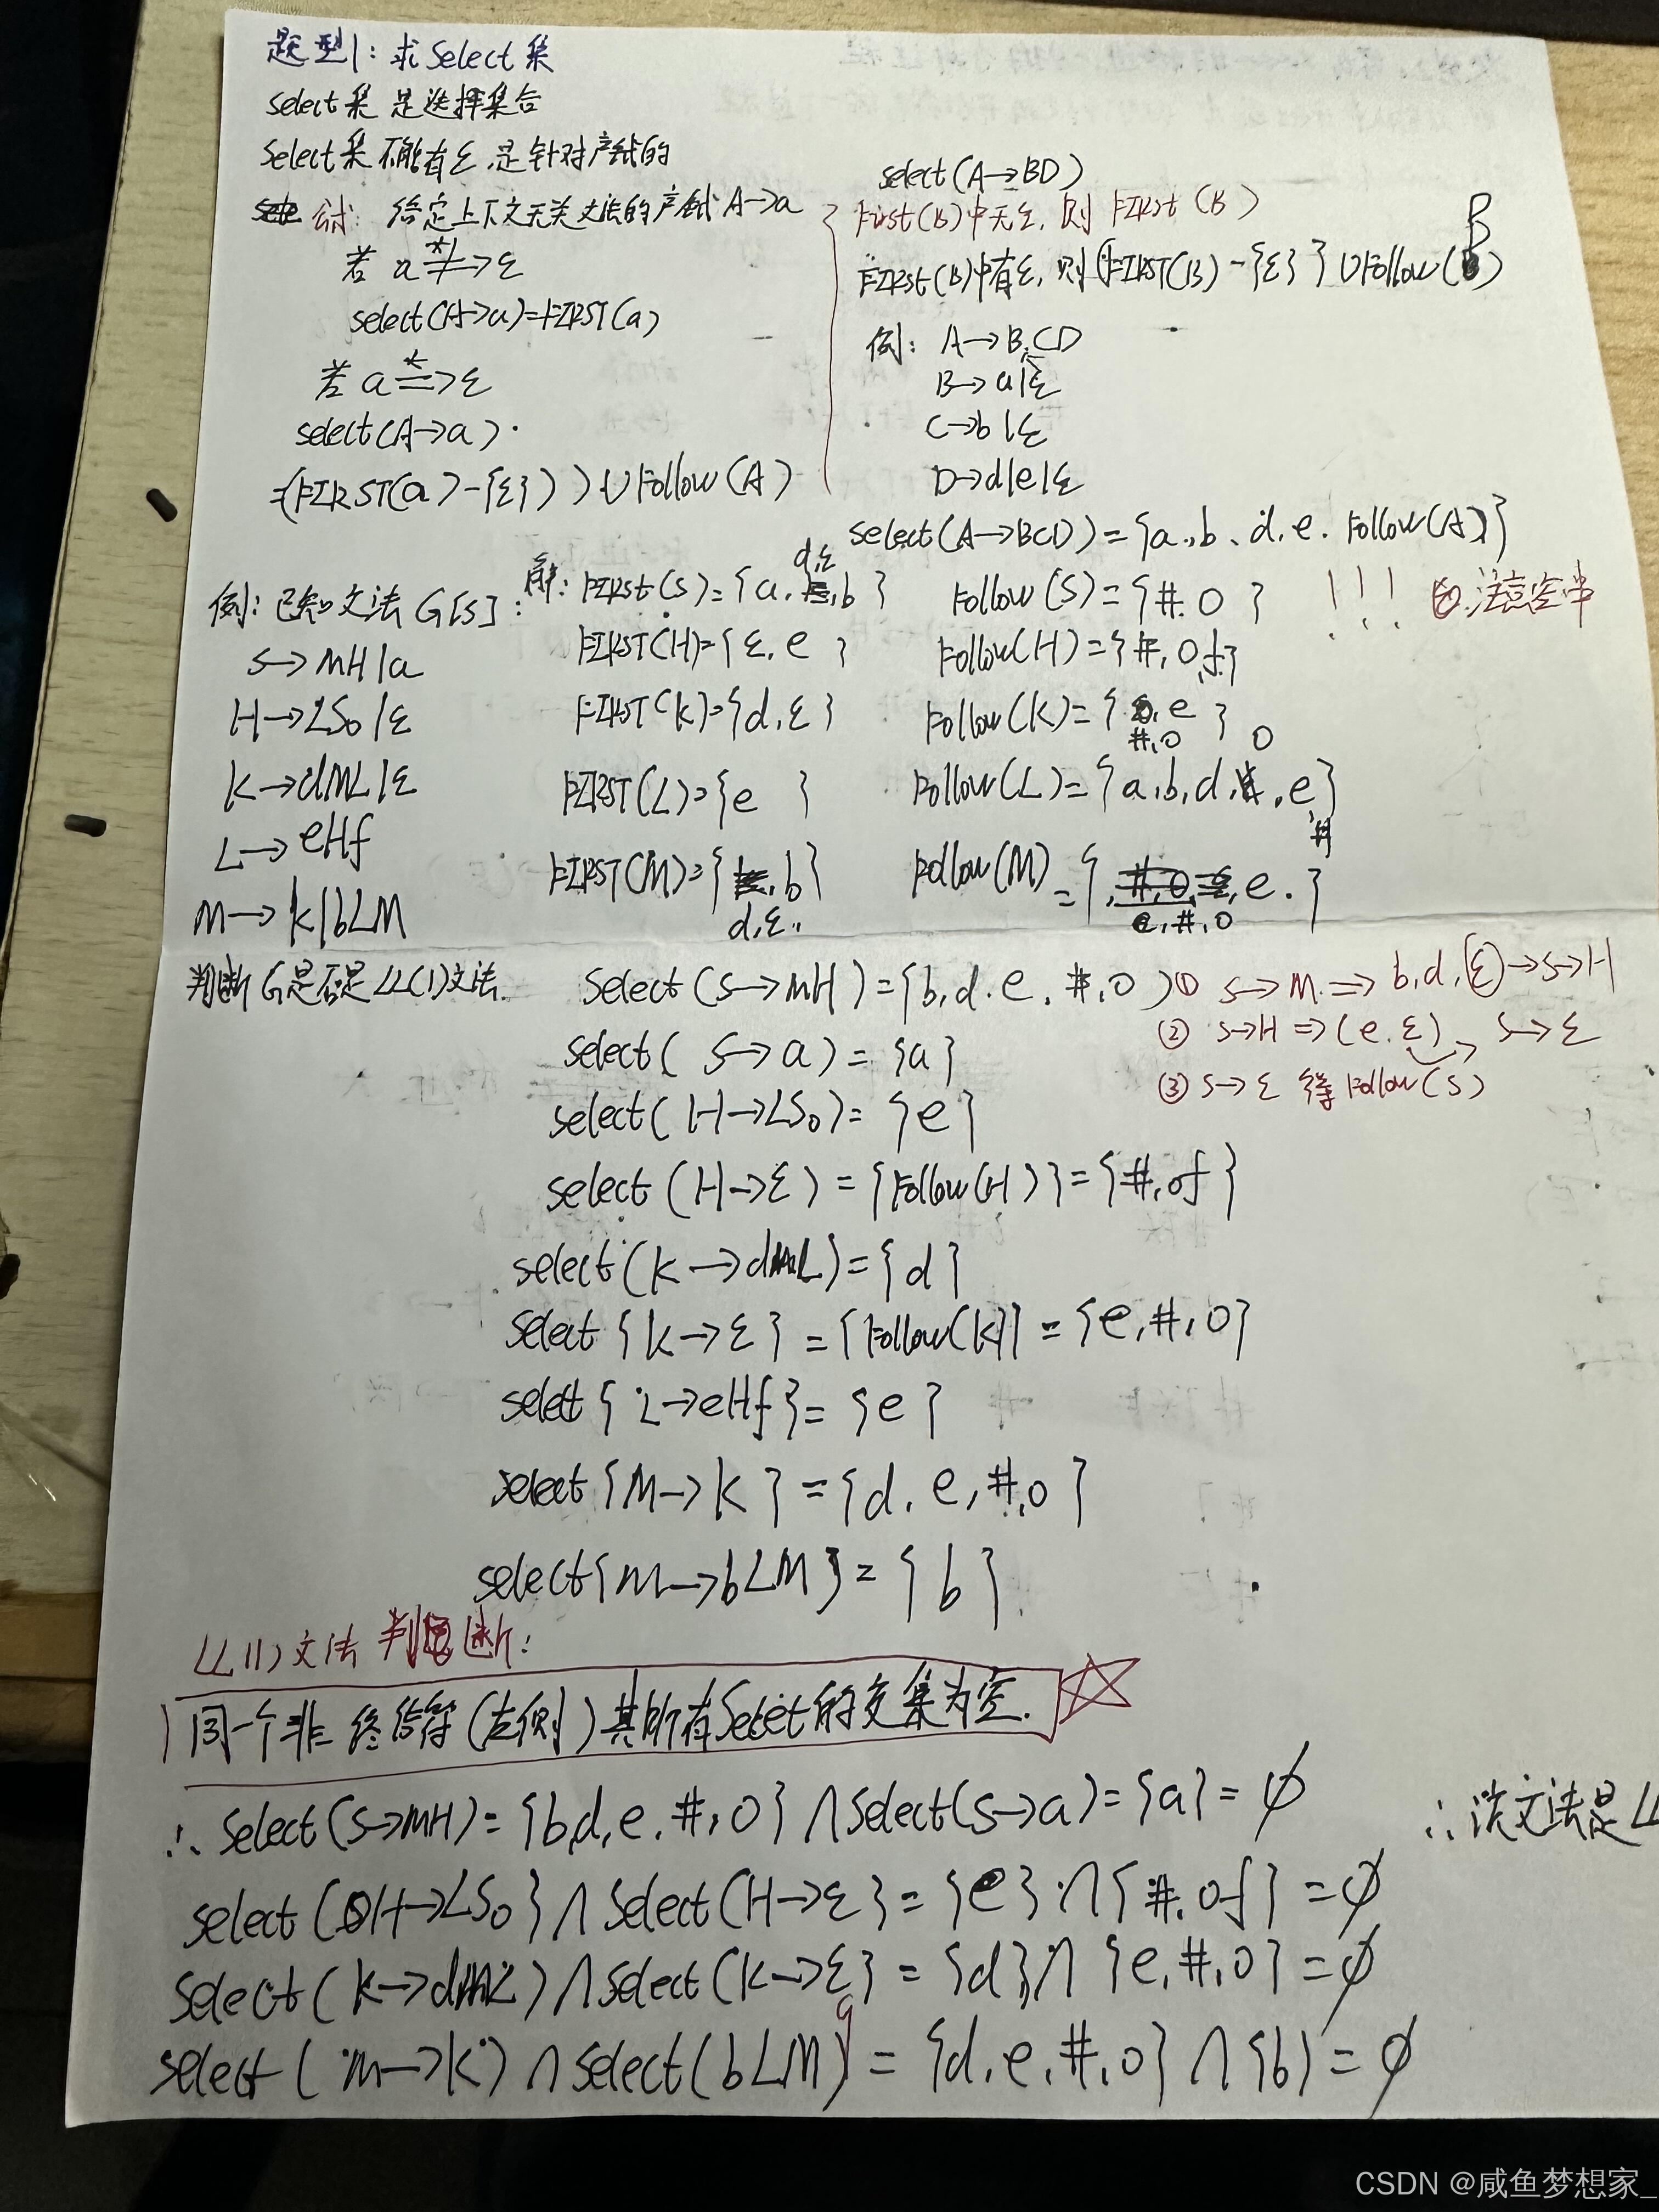 题型1：求Select集
select集 是选择集合
Select集不能有ε，是针对产生式的
公式：给定上下文无关文法的产生式A→a
若 a *≠> ε
select(A→a)=FIRST(a)
若 a *=> ε
select(A→a)
=(FIRST(a)-{ε})∪Follow(A)
select(A→BD)
First(B)中无ε，则 FIRst(B)
FIRst(B)中有ε，则(FIRST(B)-{ε}}∪Follow(B)
例：A→BCD
B→a|ε
C→b|ε
D→d|e|ε
select(A→BCD)={a,b、d,e. Follow(A)}
例：已知文法G[S]：
S→MH|a
H→LSo|ε
K→dML|ε
L→eHf
M→K|bLM
判断G是否是LL(1)文法.
解：FIRst(S)={a,d,ε,b}
FIRST(H)={ε,e}
FIRST(K)={d,ε}
FIRST(L)={e}
FIRST(M)={b}
d,ε
Follow(S)={#.o}
!!! 注意空串
Follow(H)={#,o,f}
Follow(K)={e}
#,o
Follow(L)={a,b,d,e}
o
#
Follow(M)={e.}
e,#,o
Select(S→MH)={b,d.e.#,o}
① S→M => b,d,ε→S→H
② S→H =>(e.ε) S→ε
③ S→ε 得 Follow(S)
select(S→a)={a}
select(H→LSo)={e}
select(H→ε)={Follow(H)}={#,of}
select(K→dML)={d}
select{K→ε}={Follow(K)}={e,#,o}
select{L→eHf}={e}
select{M→K}={d,e,#,o}
select{M→bLM}={b}
LL(1)文法 判断：
同一个非终结符(左侧)其所有Select的交集为空.
∴ select(S→MH)={b,d,e.#,o}∩select(S→a)={a}=∅
∴该文法是LL
select(H→LSo}∩select(H→ε}={e}∩{#.of}=∅
select(K→dML)∩select(K→ε}={d}∩{e,#,o}=∅
select(M→K)∩select(bLM)={d,e,#,o}∩{b}=∅
CSDN @咸鱼梦想家_